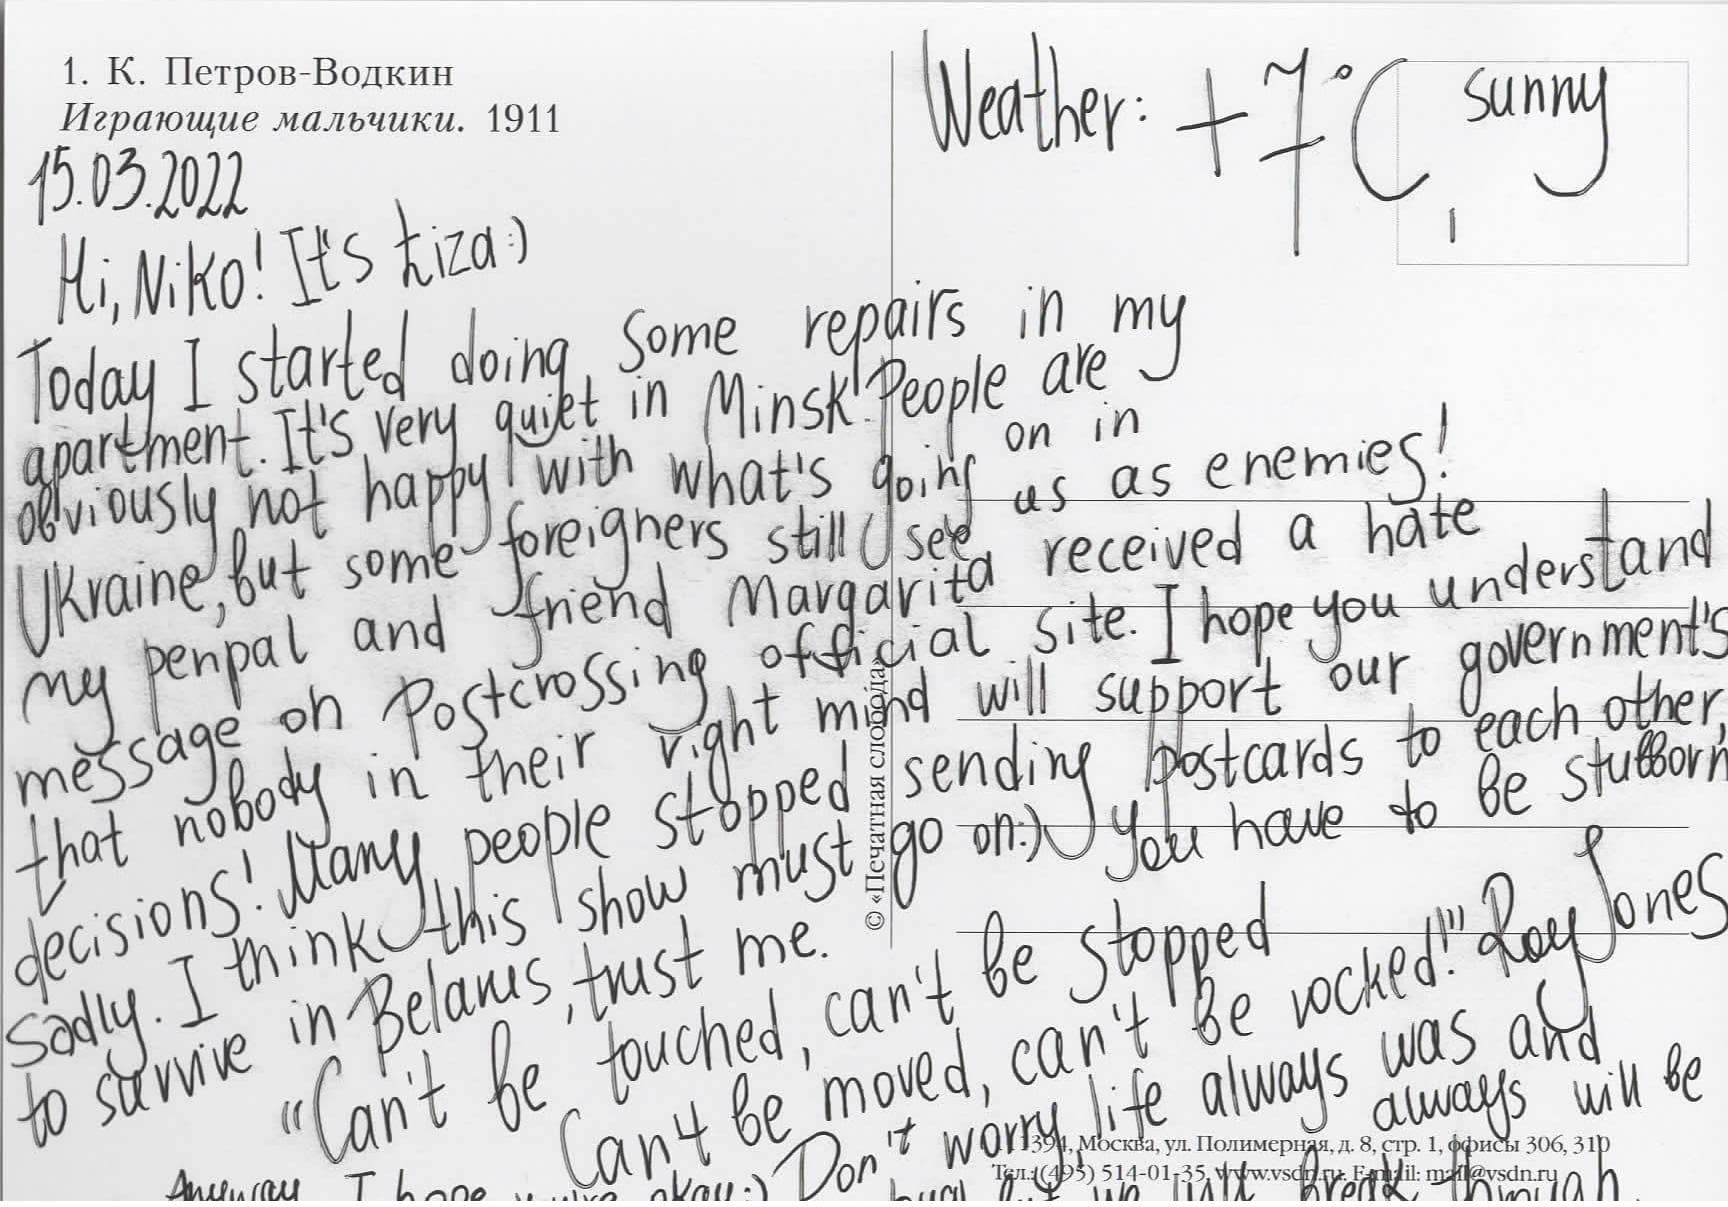 1. К. Петров-Водкин
Играющие мальчики. 1911
15.03.2022
Weather: +7°C, sunny
Hi, Niko! It's Liza:)
Today I started doing some repairs in my
apartment. It's very quiet in Minsk. People are
obviously not happy with what's going on in
Ukraine, but some foreigners still see us as enemies!
my penpal and friend Margarita received a hate
message on Postcrossing official site. I hope you understand
that nobody in their right mind will support our government's
decisions! Many people stopped sending postcards to each other,
sadly. I think this show must go on:) You have to be stubborn
to survive in Belarus, trust me.
"Can't be touched, can't be stopped
Can't be moved, can't be rocked!" Roy Jones
Anyway I hope you're okay:) Don't worry, life always was and
always will be
but we will break through
© «Печатная слобода»
111394, Москва, ул. Полимерная, д. 8, стр. 1, офисы 306, 310
Тел.: (495) 514-01-35, www.vsdn.ru. E-mail: mail@vsdn.ru